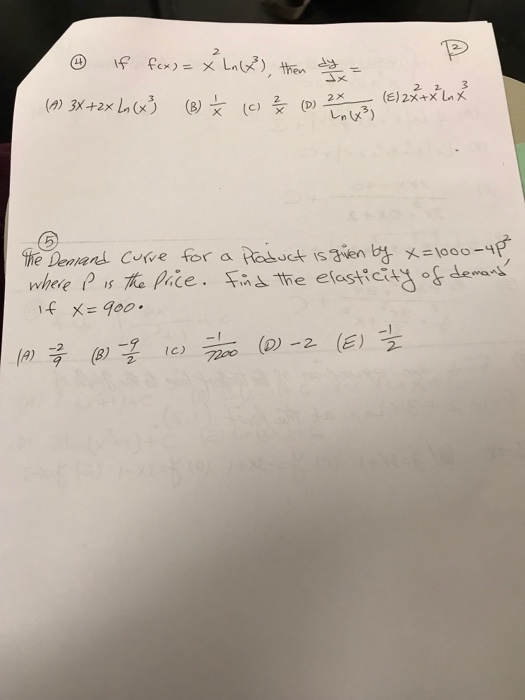 2
④ If f(x) = x² Ln(x³), then dy/dx =
(A) 3x+2x Ln(x³) (B) 1/x (C) 2/x (D) 2x/Ln(x³) (E) 2x²+x² Ln x³
⑤
The Demand Curve for a Product is given by x=1000-4p²
where P is the Price. Find the elasticity of demand,
if x=900.
(A) -2/9 (B) -9/2 (C) -1/7200 (D) -2 (E) -1/2